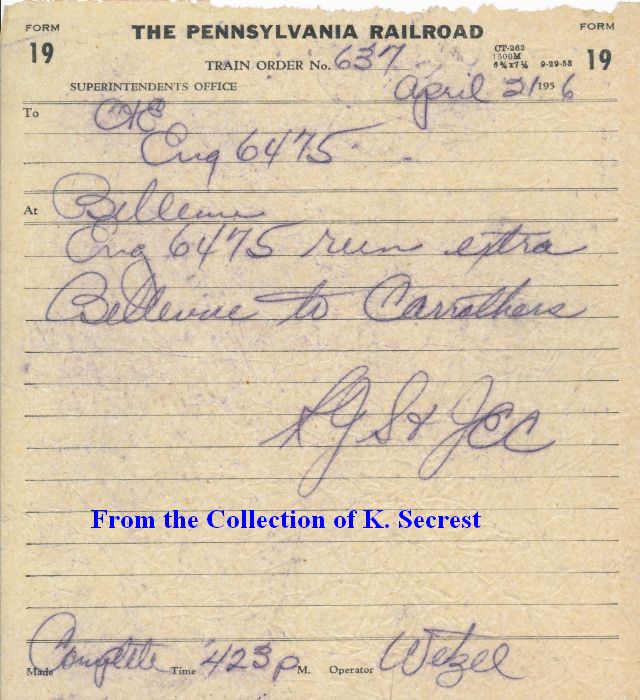 FORM 19 THE PENNSYLVANIA RAILROAD FORM 19
TRAIN ORDER No. 637 CT-262 1500M 9-29-53
SUPERINTENDENTS OFFICE April 21 1956
To C&E
Eng 6475
At Bellevue
Eng 6475 run extra
Bellevue to Carrothers
From the Collection of K. Secrest
Made Complete Time 423 P M. Operator Wetzel